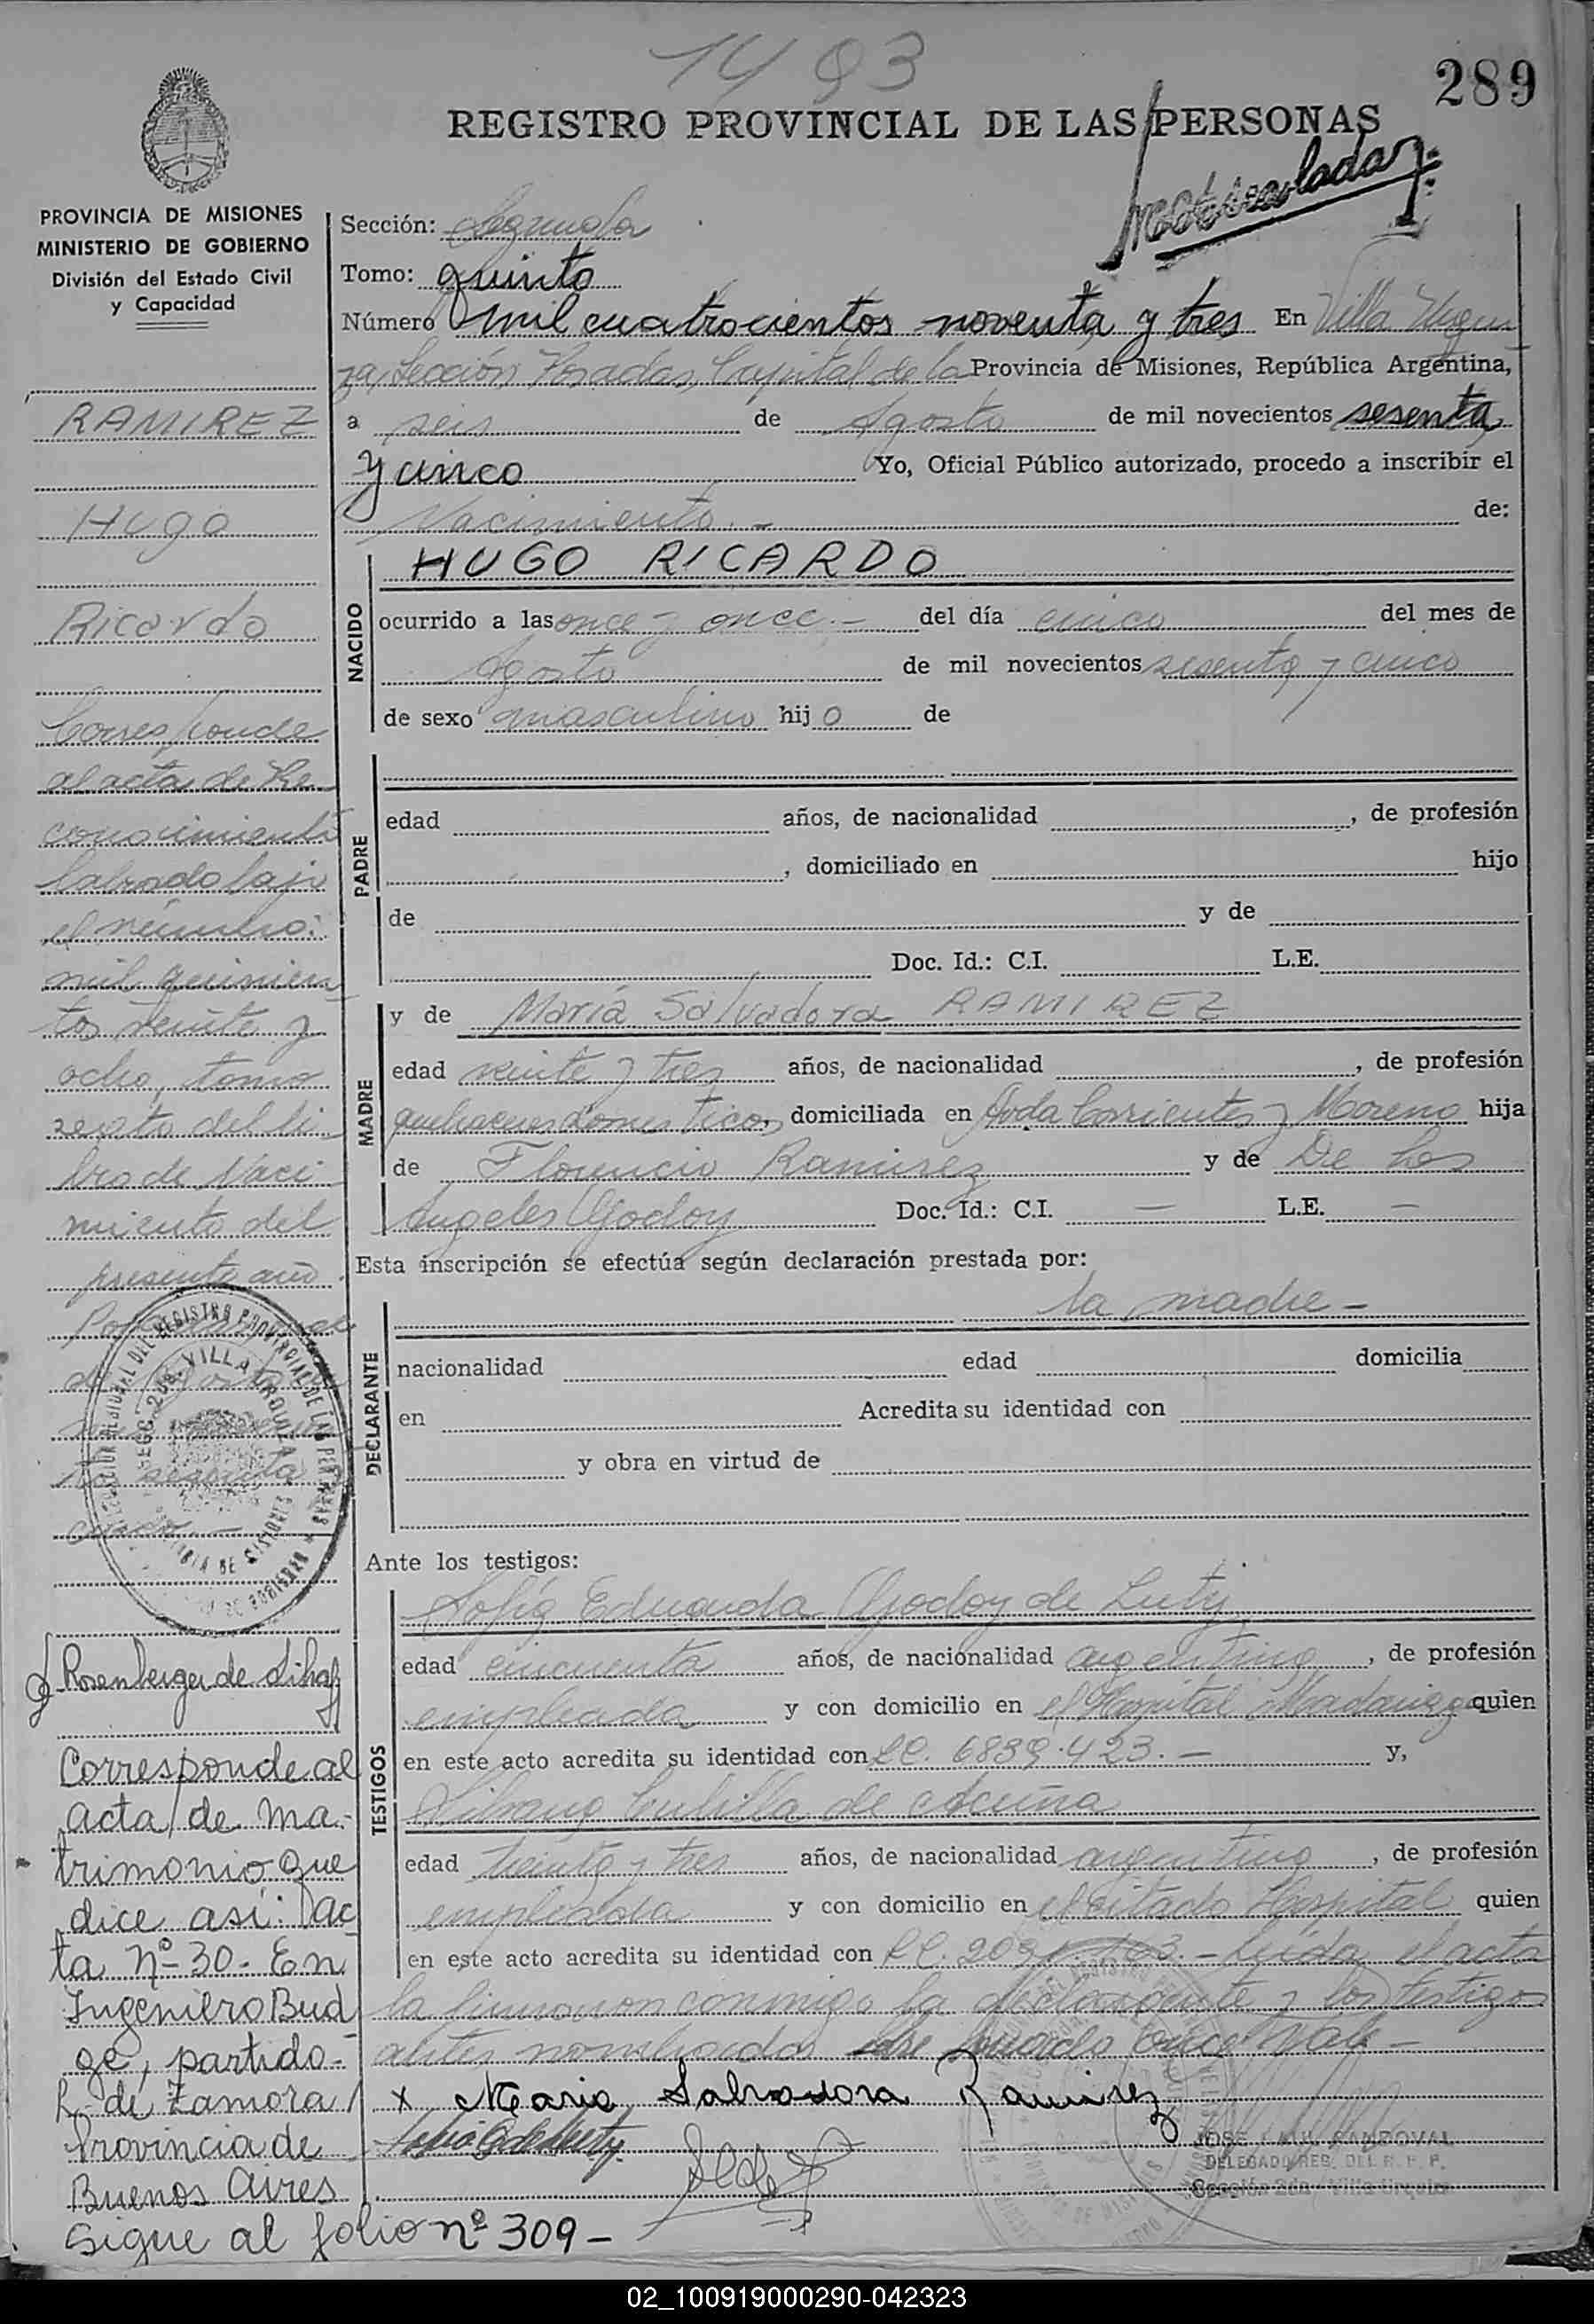 1493
289
REGISTRO PROVINCIAL DE LAS PERSONAS
PROVINCIA DE MISIONES
MINISTERIO DE GOBIERNO
División del Estado Civil
y Capacidad
Sección: Segunda
Tomo: quinto
Número mil cuatrocientos noventa y tres En Villa Urqui
za, Sección Posadas, Capital de la Provincia de Misiones, República Argentina,
a seis de Agosto de mil novecientos sesenta
y cinco Yo, Oficial Público autorizado, procedo a inscribir el
Nacimiento.- de:
NACIDO
HUGO RICARDO
ocurrido a las once y once.- del día cinco del mes de
Agosto de mil novecientos sesenta y cinco
de sexo masculino hijo de
PADRE
edad años, de nacionalidad , de profesión
, domiciliado en hijo
de y de
Doc. Id.: C.I. L.E.
MADRE
y de María Salvadora RAMIREZ
edad veinte y tres años, de nacionalidad , de profesión
quehaceres domesticos, domiciliada en Avda Corrientes y Moreno hija
de Florencio Ramirez y de De Los
Angeles Godoy Doc. Id.: C.I. — L.E. —
Esta inscripción se efectúa según declaración prestada por:
la madre -
DECLARANTE
nacionalidad edad domicilia
en Acredita su identidad con
y obra en virtud de
Ante los testigos:
TESTIGOS
Sofía Eduarda Godoy de Luty
edad cincuenta años, de nacionalidad argentina, de profesión
empleada y con domicilio en el Hospital Madariaga quien
en este acto acredita su identidad con LC. 6839.423.- y,
de Acuña
edad treinta y tres años, de nacionalidad argentina, de profesión
empleada y con domicilio en el citado Hospital quien
en este acto acredita su identidad con LC. - Leída el acta
la firmaron conmigo la declarante y los testigos
antes nombrados Vale -
x Maria Salvadora Ramirez
JOSE RAUL SANDOVAL
DELEGADO REG. DEL R. P. P.
Sección 2da. Villa Urquiza
RAMIREZ
Hugo
Ricardo
Corresponde
al acta de Re-
conocimiento
labrado bajo
el número:
mil quinien
tos veinte y
ocho, tomo
sexto del li
bro de Naci
miento del
presente año.
Rosenberger de
Corresponde al
acta de ma-
trimonio que
dice así: Ac
ta Nº 30- En
Ingeniero Bud
ge, partido
L. de Zamora
Provincia de
Buenos Aires
Sigue al folio nº 309 -
02_100919000290-042323